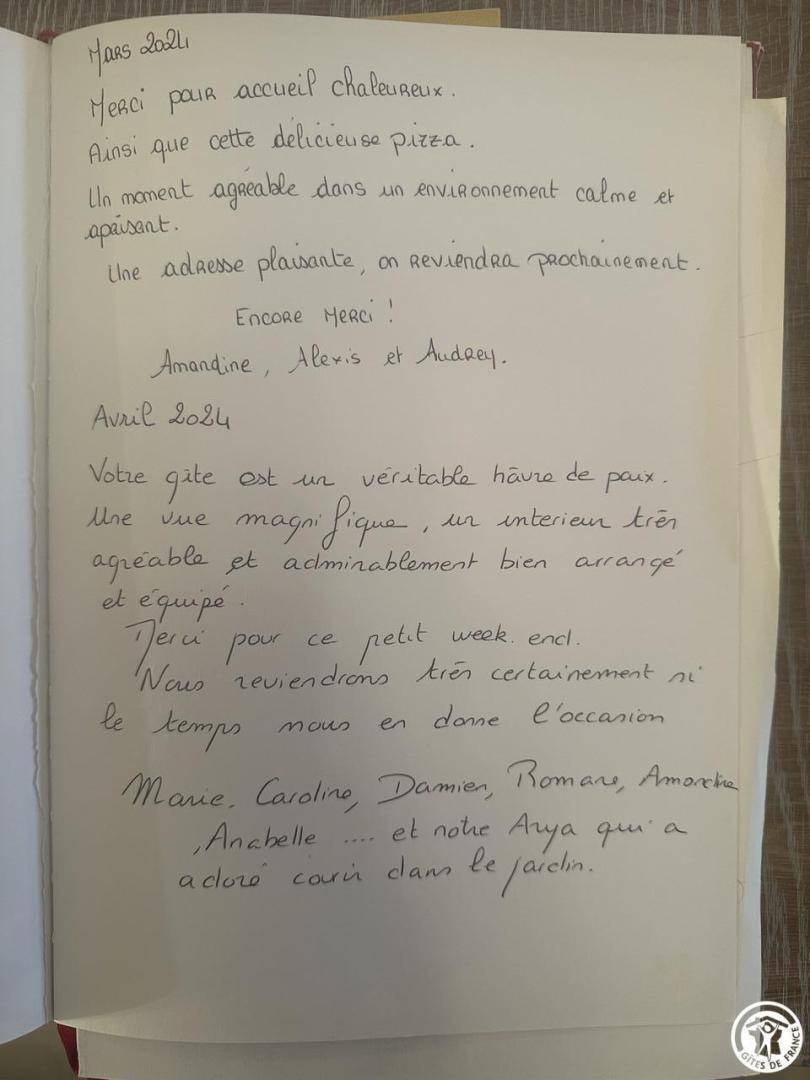 Mars 2024
Merci pour accueil chaleureux.
Ainsi que cette délicieuse pizza.
Un moment agréable dans un environnement calme et
apaisant.
Une adresse plaisante, on reviendra prochainement.
Encore Merci !
Amandine, Alexis et Audrey.
Avril 2024
Votre gîte est un véritable hâvre de paix.
Une vue magnifique, un interieur très
agréable et admirablement bien arrangé
et équipé.
Merci pour ce petit week-end.
Nous reviendrons très certainement si
le temps nous en donne l'occasion
Marie, Caroline, Damien, Romane, Amandine
, Anabelle .... et notre Arya qui a
adoré courir dans le jardin.
GÎTES DE FRANCE